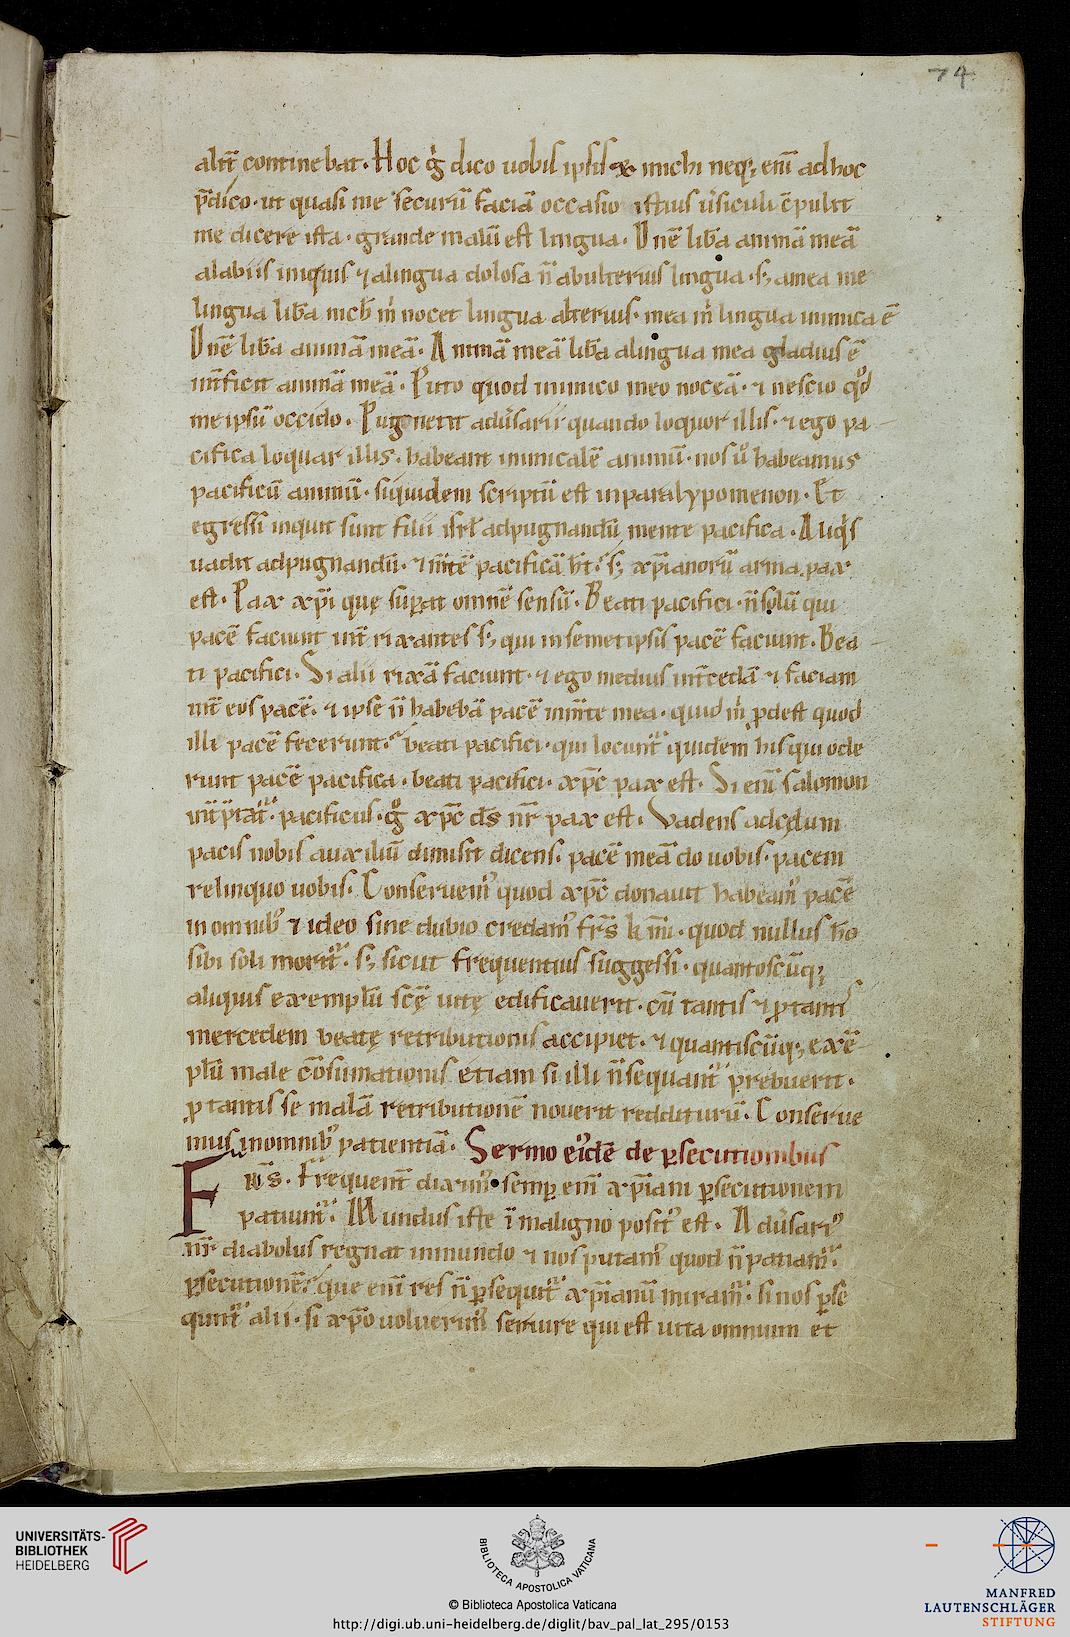 74
altī continebat. Hoc gͦ dico uobis ipsis & michi neq; enī ad hoc
p̄dico. ut quasi me securū faciā occasio istius ūsiculi cōpulit
me dicere ista. grande malū est lingua. Dn̄e lib̄a animā meā
a labiis iniquis ⁊ a lingua dolosa n̄ ab ulterius lingua. s; a mea me
lingua lib̄a nich̄ m̄ nocet lingua alterius. mea m̄ lingua inimica ē
Dn̄e lib̄a animā meā. Animā meā lib̄a a lingua mea gladius ē
int̄ficit animā meā. Puto quod inimico meo noceā. ⁊ nescio qd̄
me ipsū occido. Pugnent adūsarii quando loquor illis. ⁊ ego pa
cifica loquar illis. habeant inimicalē animū. nos ū habeamus
pacificū animū. siquidem scriptū est in paralypomenon. Et
egressi inquit sunt filii isrl̄ ad pugnandū mente pacifica. Aliqͥs
uadit ad pugnandū. ⁊ m̄tē pacificā h̄t. s; xp̄ianorū arma pax
est. Pax xp̄i quę sup̄at omnē sensū. Beati pacifici. n̄ solū qui
pacē faciunt int̄ rixantes s; qui in semetipsis pacē faciunt. Bea
ti pacifici. Si alii rixā faciunt. ⁊ ego medius int̄cedā ⁊ faciam
int̄ eos pacē. ⁊ ipse n̄ habebā pacē in m̄te mea. quid m̄ p̄dest quod
illi pacē fecerunt. beati pacifici. qui locunt̄ quidem his qui ode
runt pacē pacifica. beati pacifici. xp̄c pax est. Si enī salomon
int̄p̄tat̄. pacificus. gͦ xp̄c ds̄ nr̄ pax est. Vadens ad cęlum
pacis nobis auxiliū dimisit dicens. pacē meā do uobis. pacem
relinquo uobis. Conseruem̄ quod xp̄c donauit habeam̄ pacē
in omnib; ⁊ ideo sine dubio credam̄ frs̄ k̄mi. quod nullus hō
sibi soli morit̄. s; sicut frequentius suggessi. quantoscūq;
aliquis exemplū scę uitę edificauerit. cū tantis ⁊ p̄ tantis
mercedem beatę retributionis accipiet. ⁊ quantiscūq; exē
plū male cōsumationis etiam si illi n̄ sequant̄ prebuerit.
p̄ tantis se malā retributionē nouerit redditurū. Conserue
mus in omnib; patientiā. Sermo eiꝰdē de p̄secutionibus
Frs̄. Frequent̄ diximꝰ semp̄ enī xp̄iani p̄secutionem
patiunt̄. Mundus iste ī maligno positꝰ est. Adūsariꝰ
nr̄ diabolus regnat in mundo ⁊ nos putamꝰ quod n̄ patiam̄
p̄secutionē. que enī res n̄ p̄sequit̄ xp̄ianū miram̄. si nos p̄se
qunt̄ alii. si xp̄o uoluerimꝰ seruire qui est uita omnium et
UNIVERSITÄTS-
BIBLIOTHEK
HEIDELBERG
BIBLIOTECA APOSTOLICA VATICANA
© Biblioteca Apostolica Vaticana
http://digi.ub.uni-heidelberg.de/diglit/bav_pal_lat_295/0153
MANFRED
LAUTENSCHLÄGER
STIFTUNG